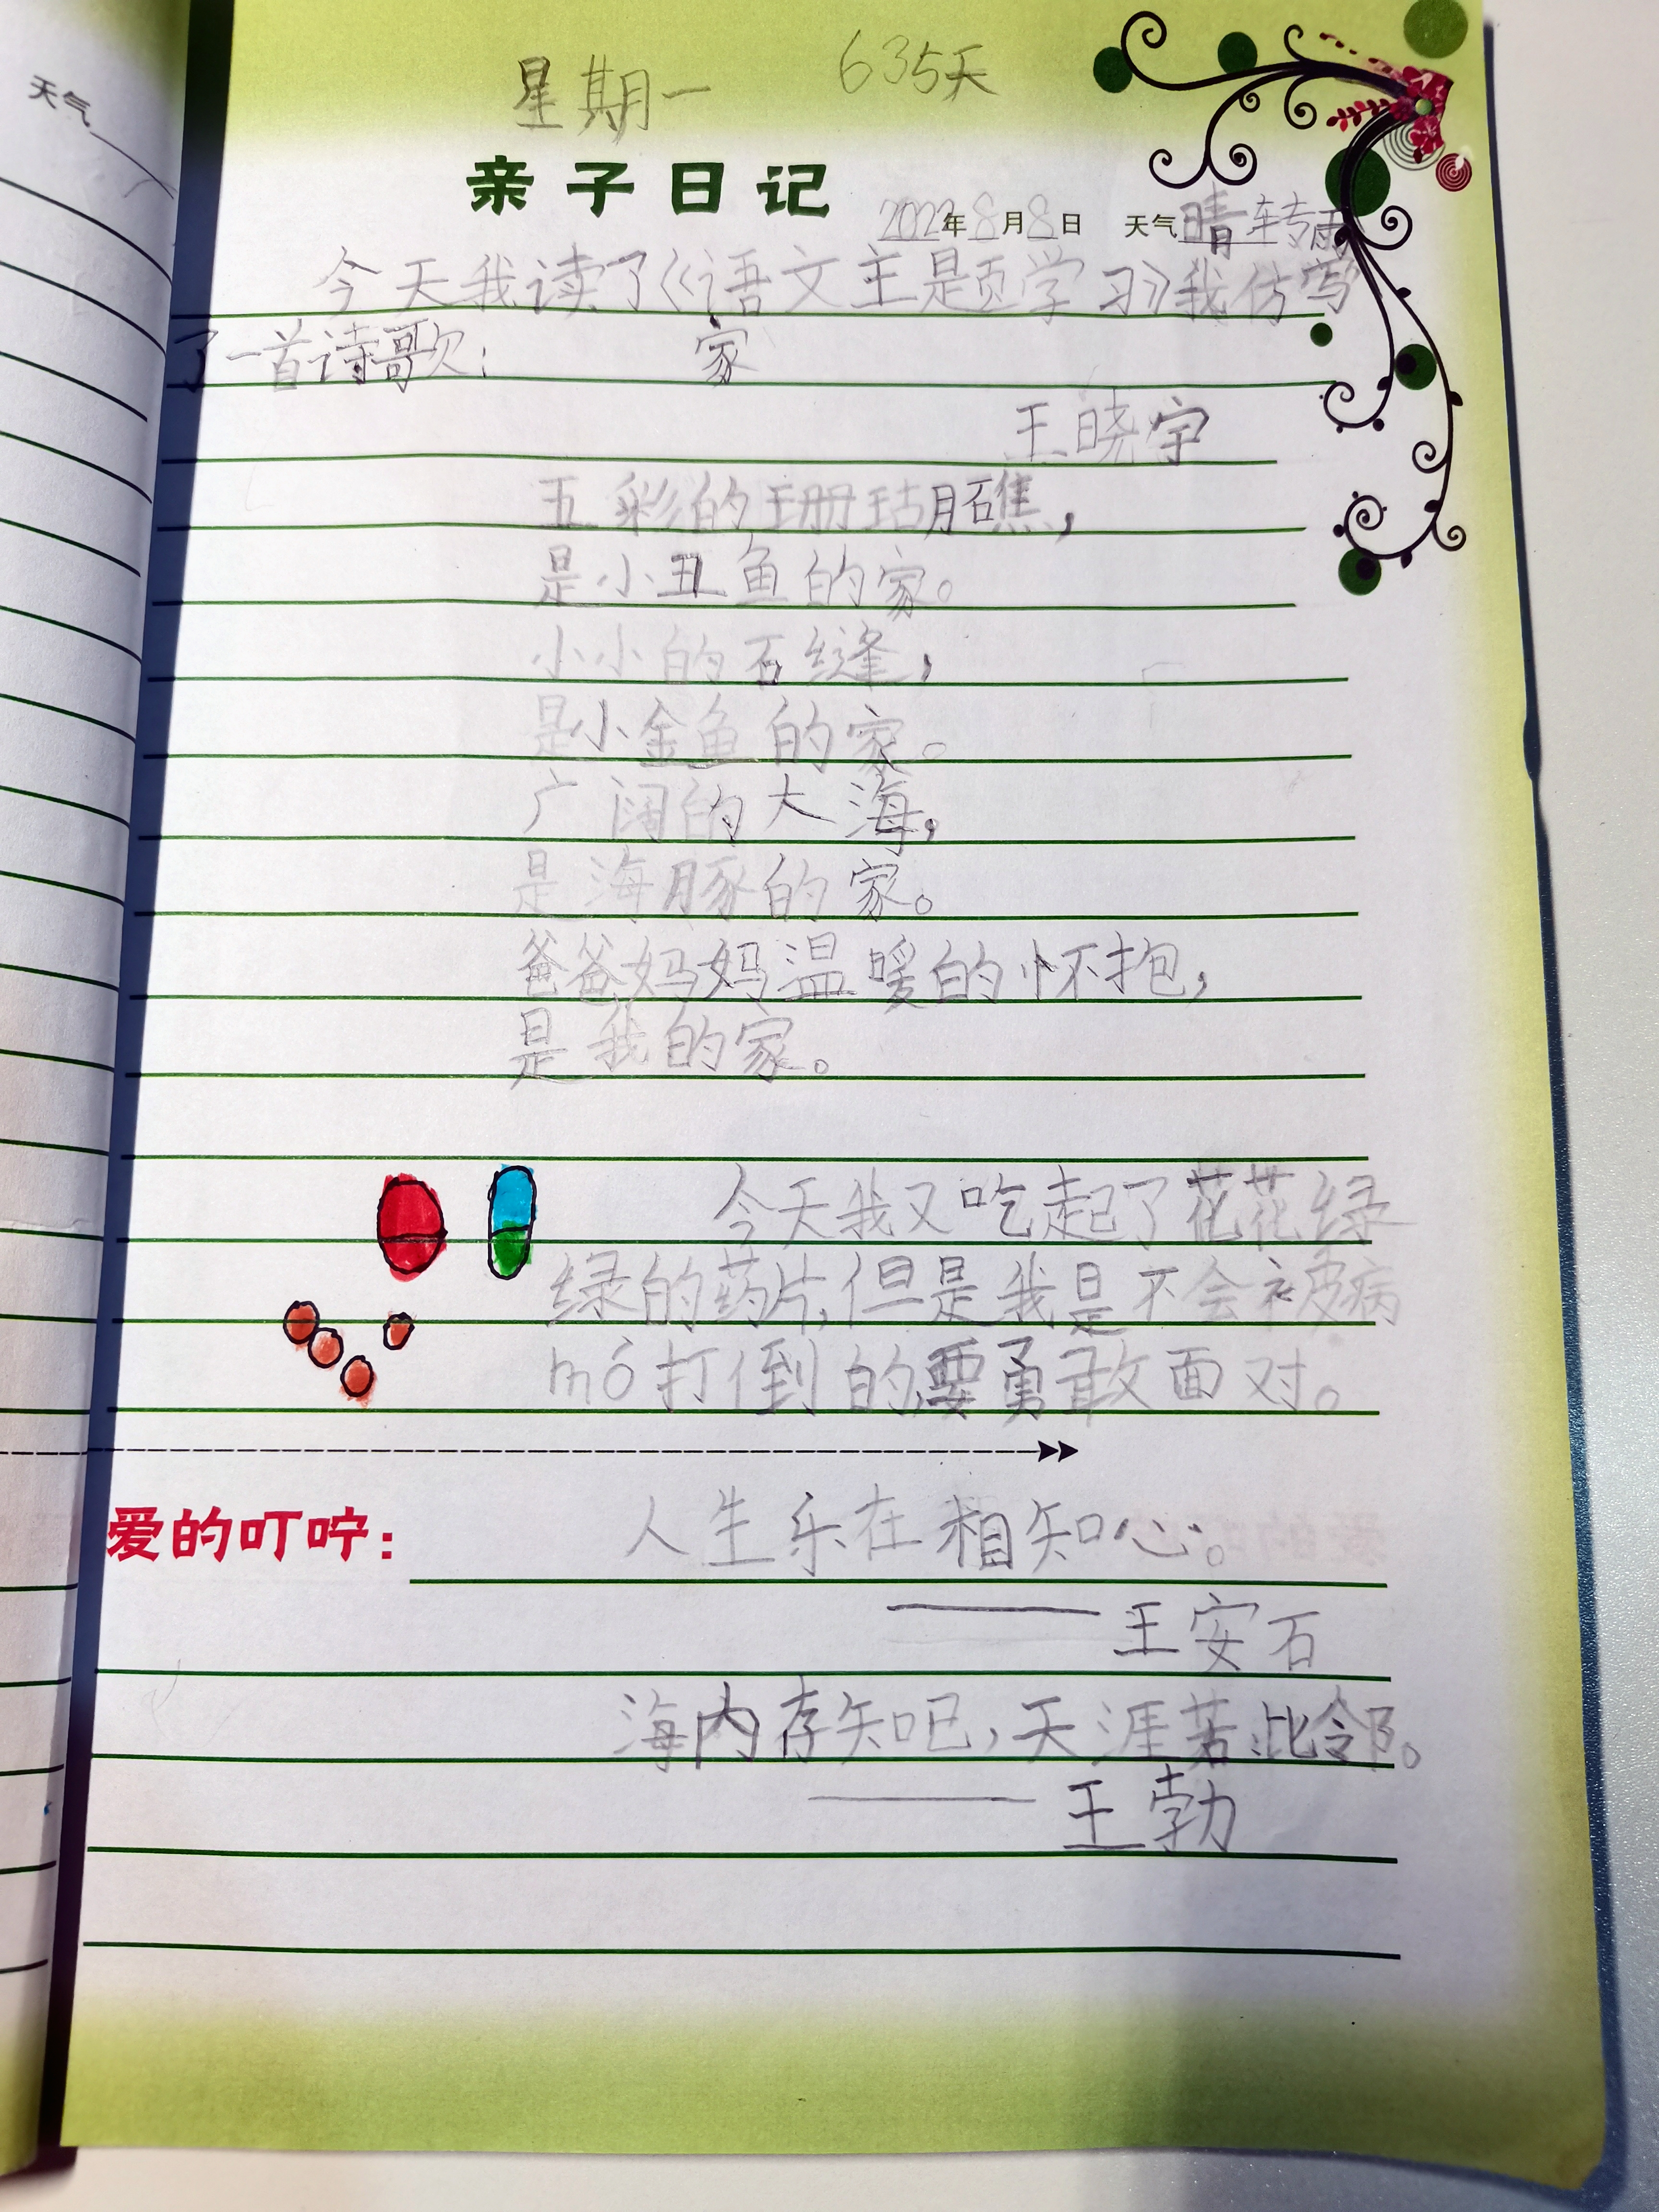 天气
星期一 635天
亲子日记
2022年8月8日 天气晴转雨
今天我读了《语文主题学习》我仿写
了一首诗歌: 家
王晓宇
五彩的珊瑚礁,
是小丑鱼的家。
小小的石缝,
是小金鱼的家。
广阔的大海,
是海豚的家。
爸爸妈妈温暖的怀抱,
是我的家。
今天我又吃起了花花绿
绿的药片,但是我是不会被病
mó打倒的,要勇敢面对。
爱的叮咛: 人生乐在相知心。
——王安石
海内存知己,天涯若比邻。
——王勃